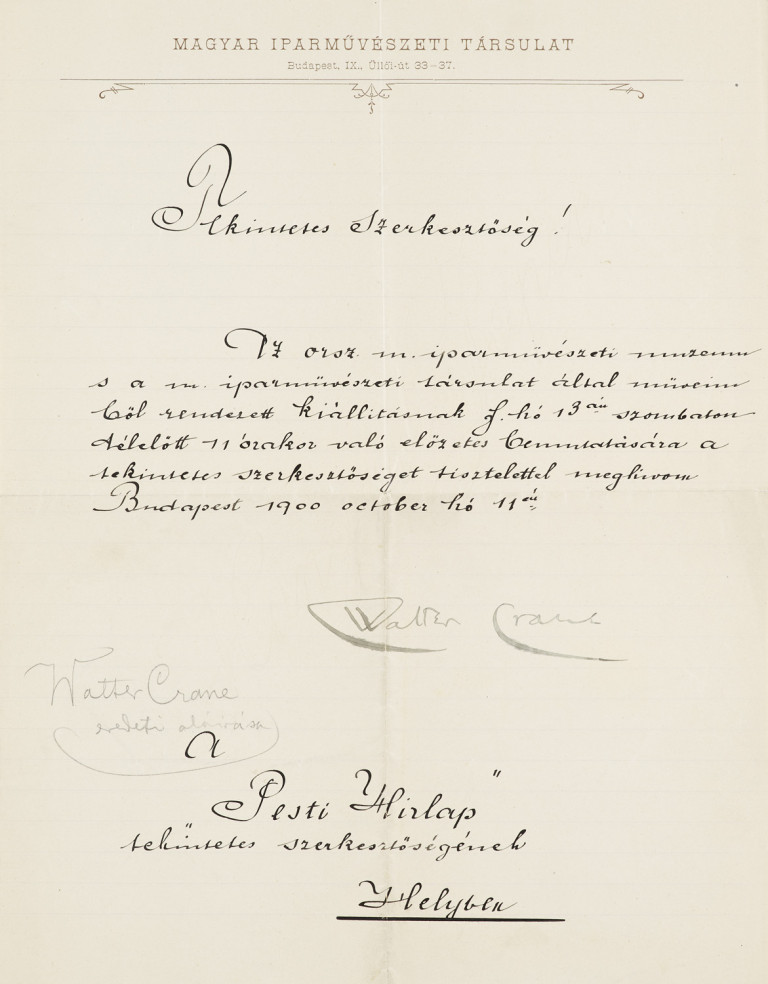 MAGYAR IPARMŰVÉSZETI TÁRSULAT
Budapest, IX., Üllői-út 33–37.
Tekintetes Szerkesztőség!
Az orsz. m. iparművészeti muzeum
s a m. iparművészeti társulat által műveim
ből rendezett kiállitásnak f. hó 13án szombaton
délelőtt 11 órakor való előzetes bemutatására a
tekintetes szerkesztőséget tisztelettel meghivom
Budapest 1900 october hó 11én
Walter Crane
Walter Crane
eredeti aláirása
A
„Pesti Hirlap"
tekintetes szerkesztőségének
Helyben